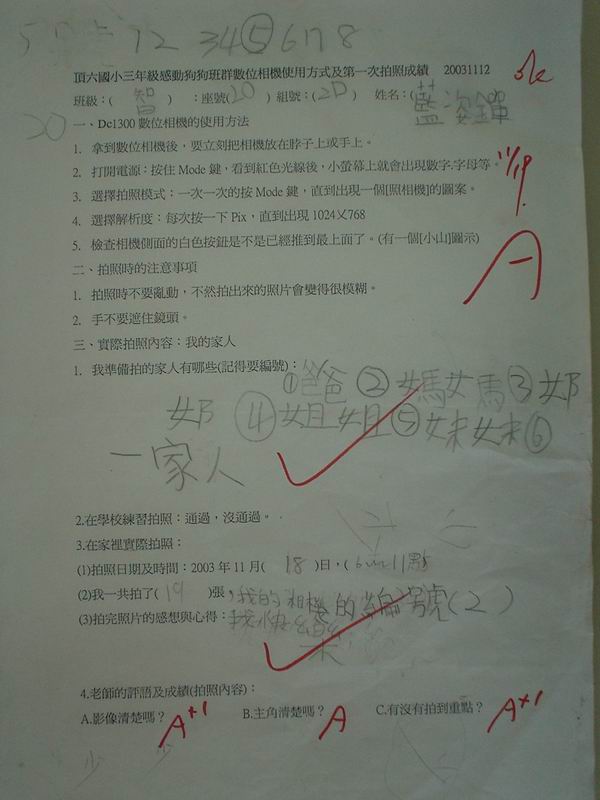 12 34⑤678
頂六國小三年級感動狗狗班群數位相機使用方式及第一次拍照成績 20031112
ok
班級：( 智 ) ：座號(20) 組號：(2D) 姓名：(藍姿鏵
20
一、Dc1300 數位相機的使用方法
1. 拿到數位相機後，要立刻把相機放在脖子上或手上。
2. 打開電源：按住 Mode 鍵，看到紅色光線後，小螢幕上就會出現數字.字母等。
11/19
3. 選擇拍照模式：一次一次的按 Mode 鍵，直到出現一個[照相機]的圖案。
4. 選擇解析度：每次按一下 Pix，直到出現 1024乂768
5. 檢查相機側面的白色按鈕是不是已經推到最上面了。(有一個[小山]圖示)
A
二、拍照時的注意事項
1. 拍照時不要亂動，不然拍出來的照片會變得很模糊。
2. 手不要遮住鏡頭。
三、實際拍照內容：我的家人
1. 我準備拍的家人有哪些(記得要編號)：
①爸爸②媽媽③奶
奶④姐姐⑤妹妹⑥
一家人
2.在學校練習拍照：通過，沒通過。
3.在家裡實際拍照：
(1)拍照日期及時間：2003 年 11 月( 18 )日，( 11點
(2)我一共拍了( 19 )張，我的相機的編號(2)
(3)拍完照片的感想與心得：我
4.老師的評語及成績(拍照內容)：
A.影像清楚嗎？ A+1 B.主角清楚嗎？ A C.有沒有拍到重點？ A+1